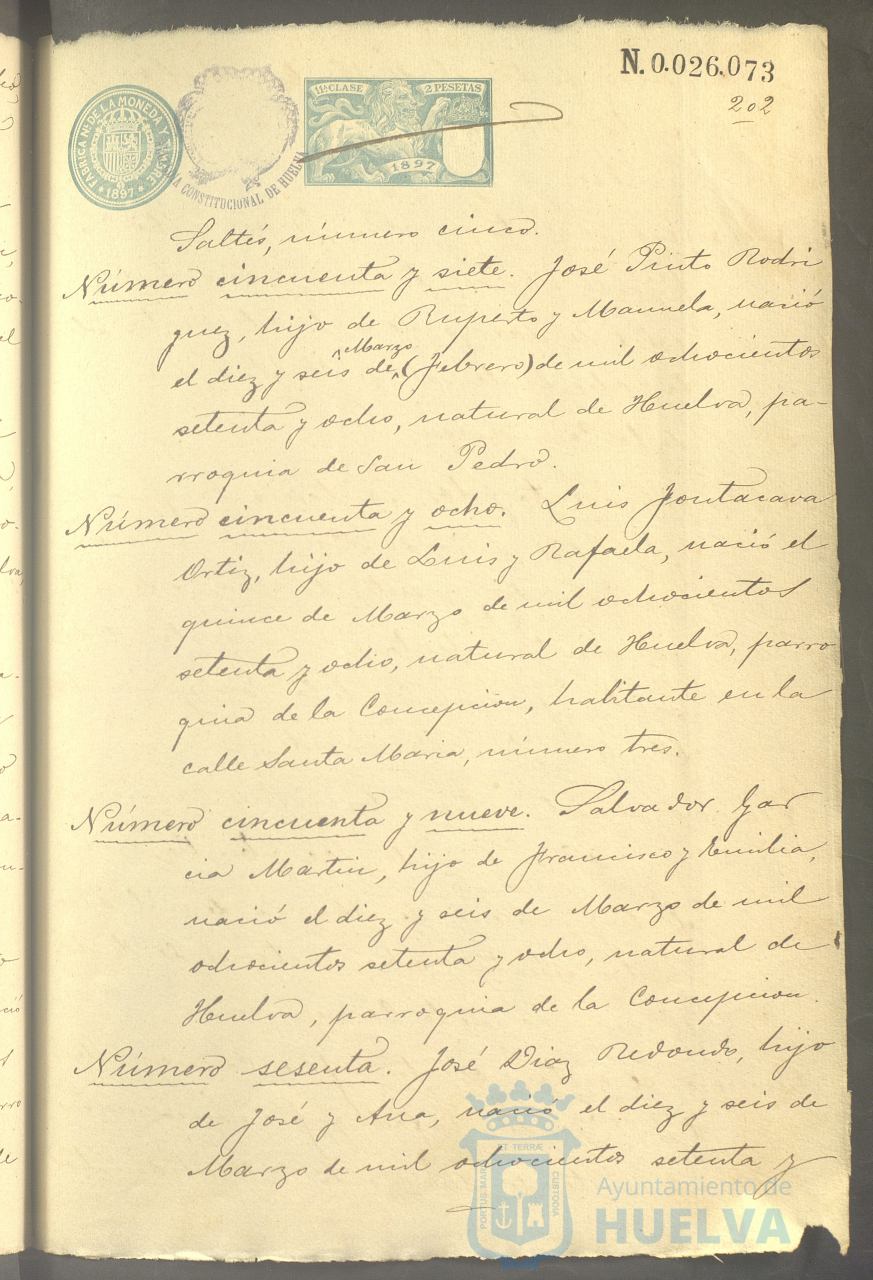 N. 0.026.073
202
FABRICA Nal DE LA MONEDA Y TIMBRE
* 1897 *
11ª CLASE 2 PESETAS
1897
CONSTITUCIONAL DE HUELVA
Saltés, número cinco.
Número cincuenta y siete. José Pinto Rodri
guez, hijo de Ruperto y Manuela, nació
Marzo
el diez y seis de (Febrero) de mil ochocientos
setenta y ocho, natural de Huelva, pa-
rroquia de San Pedro.
Número cincuenta y ocho. Luis
Ortiz, hijo de Luis y Rafaela, nació el
quince de Marzo de mil ochocientos
setenta y ocho, natural de Huelva, parro
quia de la Concepcion, habitante en la
calle Santa Maria, número tres.
Número cincuenta y nueve. Salvador Gar
cia Martin, hijo de Francisco y Emilia,
nació el diez y seis de Marzo de mil
ochocientos setenta y ocho, natural de
Huelva, parroquia de la Concepcion.
Número sesenta. José Diaz Redondo, hijo
de José y Ana, nació el diez y seis de
Marzo de mil ochocientos setenta y
PORTUS MARIS ET TERRÆ CUSTODIA
Ayuntamiento de
HUELVA